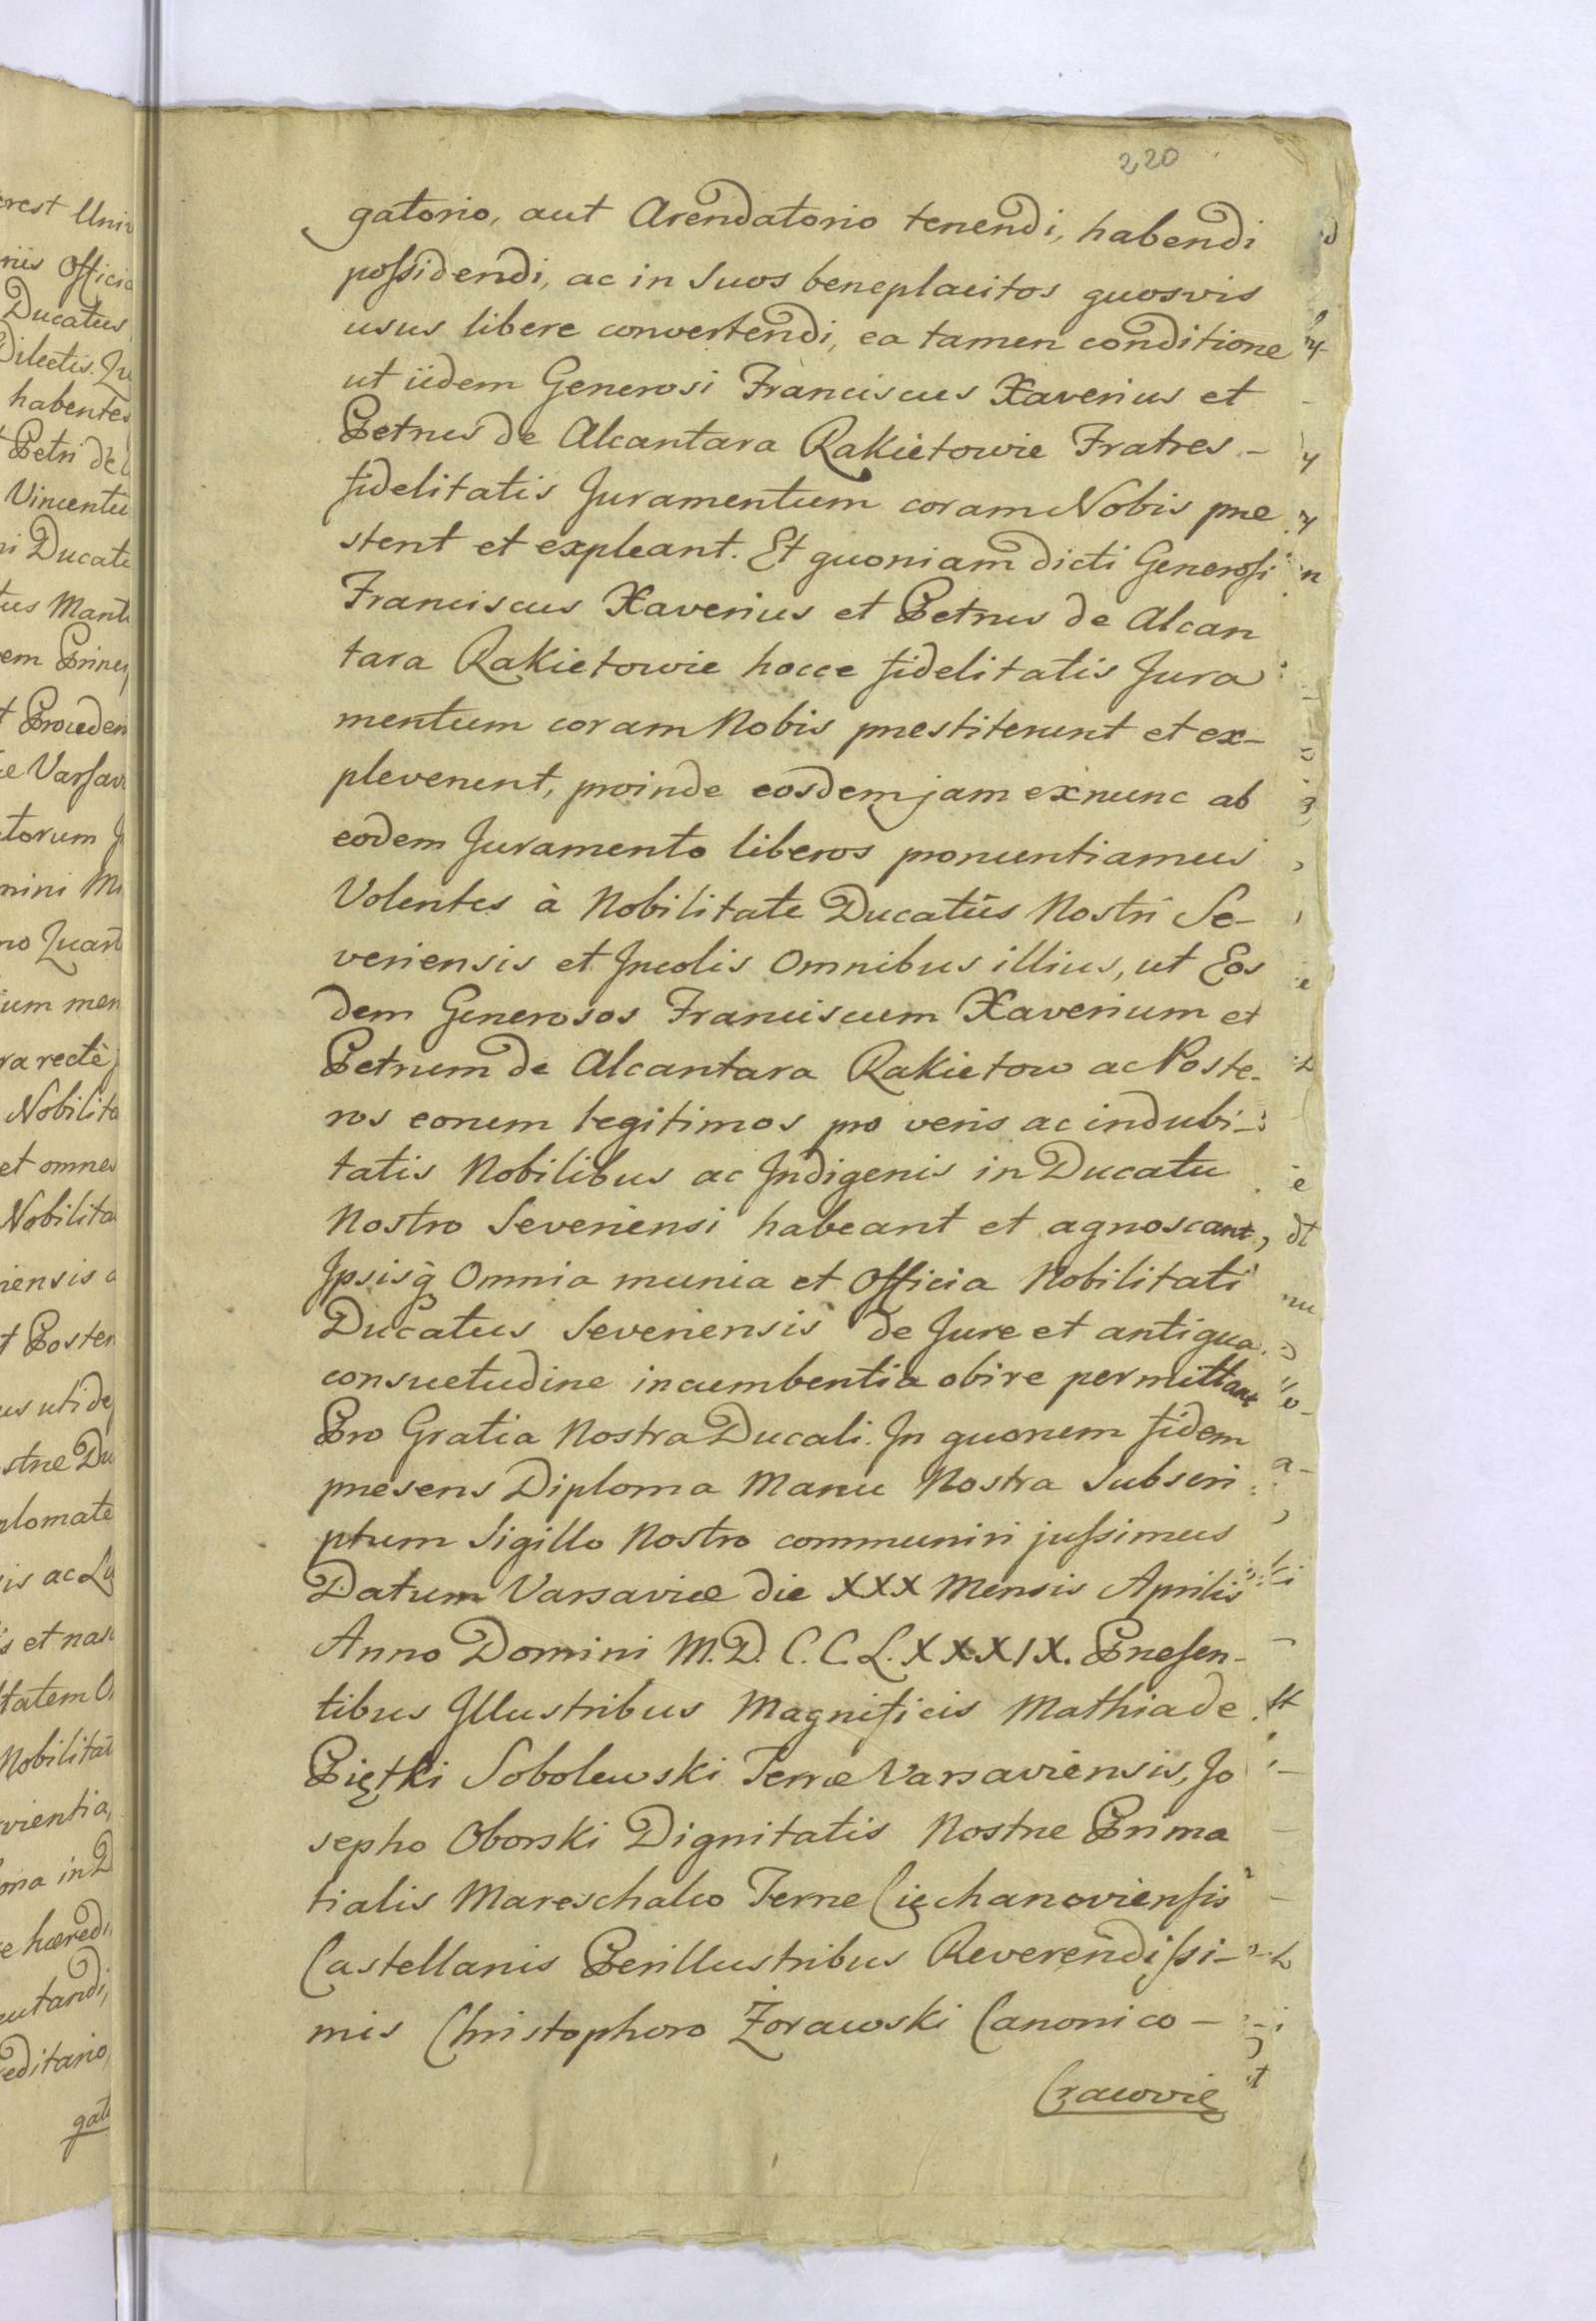 220
gatorio, aut Arendatorio tenendi, habendi
possidendi, ac in Suos beneplacitos quosvis
usus libere convertendi, ea tamen conditione
ut iidem Generosi Franciscus Xaverius et
Petrus de Alcantara Rakietowie Fratres -
fidelitatis Juramentum coram Nobis præ
stent et expleant. Et quoniam dicti Generosi
Franciscus Xaverius et Petrus de Alcan
tara Rakietowie hocce fidelitatis Jura
mentum coram Nobis præstiterunt et ex-
pleverunt, proinde eosdem jam ex nunc ab
eodem Juramento liberos pronuntiamus
Volentes à Nobilitate Ducatûs Nostri Se-
veriensis et Incolis Omnibus illius, ut Eos
dem Generosos Franciscum Xaverium et
Petrum de Alcantara Rakietow ac Poste-
ros eorum legitimos pro veris ac indubi-
tatis Nobilibus ac Indigenis in Ducatu
Nostro Severiensi habeant et agnoscant,
Ipsisq Omnia munia et Officia Nobilitati
Ducatus Severiensis de Jure et antiqua
consuetudine incumbentia obire permittant
Pro Gratia Nostra Ducali. In quorum fidem
præsens Diploma Manu Nostra Subscri
ptum Sigillo Nostro communiri jussimus
Datum Varsaviæ die XXX Mensis Aprilis
Anno Domini M.D.C.C.L.XXXIX. Præsen-
tibus Illustribus Magnificis Mathia de
Piętki Sobolewski Terræ Varsaviensis, Jo
sepho Oborski Dignitatis Nostræ Prima
tialis Mareschalco Terræ Cięchanoviensis
Castellanis Perillustribus Reverendissi-
mis Christophoro Żorawski Canonico -
Cracovię
erest Univ
Ducatus
habentes
Petri de
Nobilita
et omnes
Nobilita
plomate
hæredi
editario